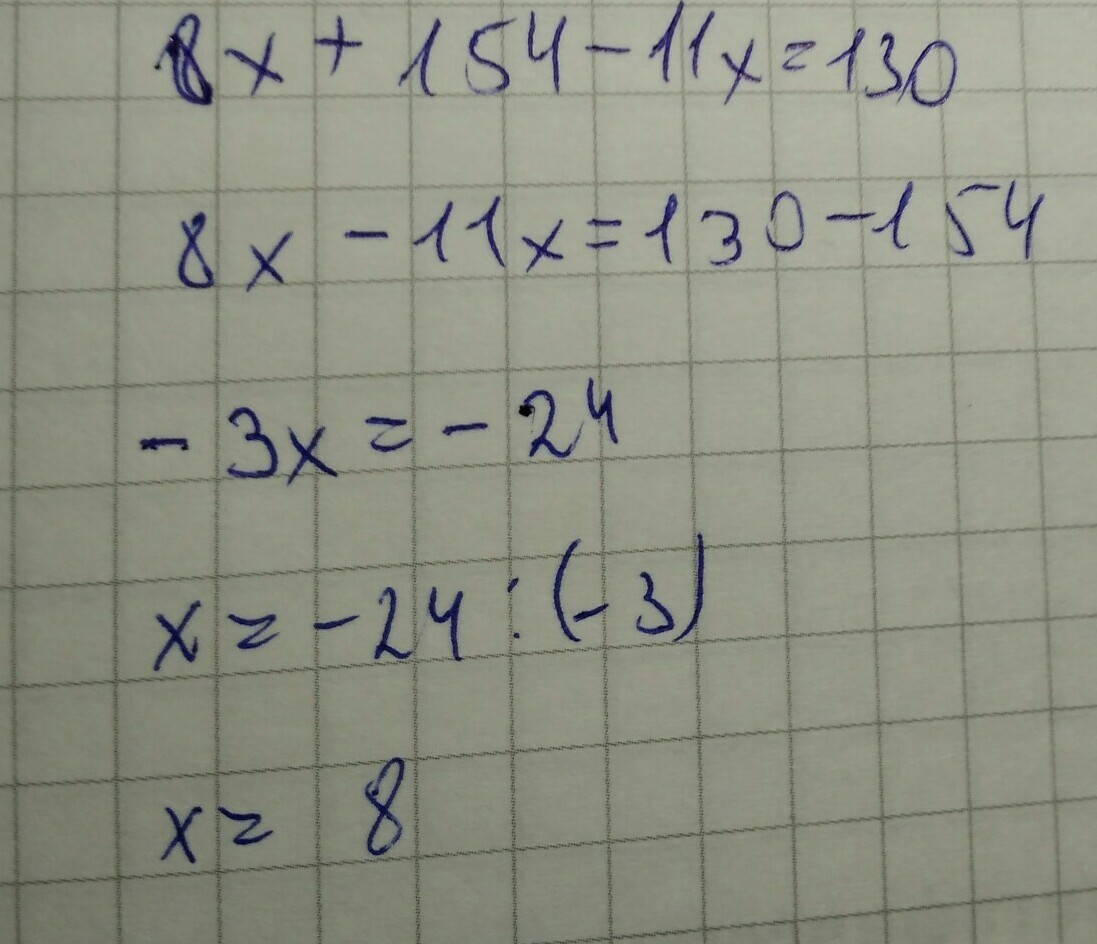 8x + 154 - 11x = 130
8x - 11x = 130 - 154
- 3x = - 24
x = - 24 : (- 3)
x = 8